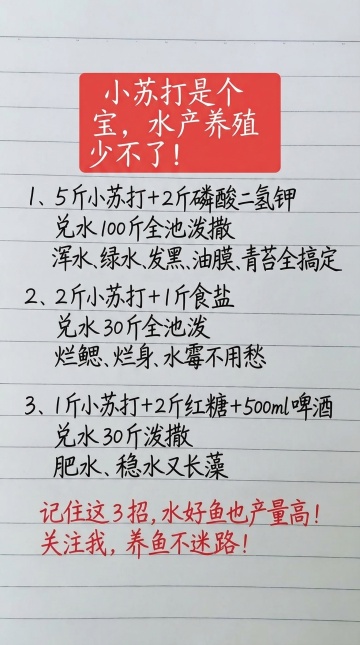 小苏打是个
宝，水产养殖
少不了！
1、5斤小苏打+2斤磷酸二氢钾
兑水100斤全池泼撒
浑水、绿水、发黑、油膜、青苔全搞定
2、2斤小苏打+1斤食盐
兑水30斤全池泼
烂鳃、烂身、水霉不用愁
3、1斤小苏打+2斤红糖+500ml啤酒
兑水30斤泼撒
肥水、稳水又长藻
记住这3招,水好鱼也产量高！
关注我，养鱼不迷路！